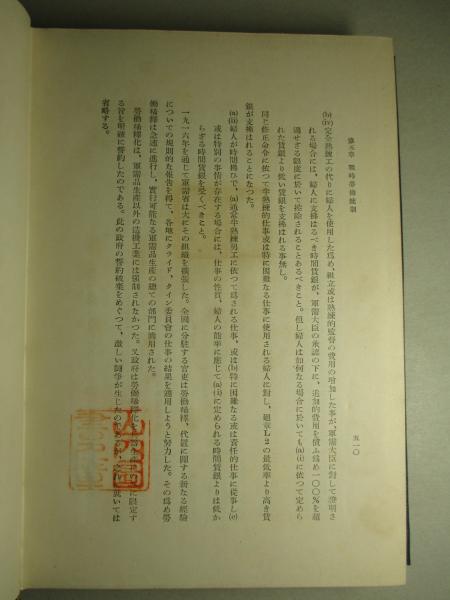 第五章 戰時勞働統制
五一〇
(b)(iv)完全熟練工の代りに婦人を使用した爲め、組立或は熟練的監督の費用の増加した事が、軍需大臣に對して證明さ
れる場合には、婦人に支拂はるべき時間賃銀が、軍需大臣の承認の下に、追加的費用を償ふ爲め一〇〇%を超
過せざる限度に於いて控除されることあるべきこと。但し婦人は如何なる場合に於いても(a)(i)に依つて定めら
れた賃銀より低い賃銀を支拂はれる事無し。
同じ修正命令に依つて半熟練的仕事或は特に困難なる仕事に使用される婦人に對し、廻章L2の最低率より高き賃
銀が支拂はれることになつた。
(a)(ii)婦人が時間拂ひで、(a)通常半熟練男工に依つて爲される仕事、或は(b)特に困難なる或は責任的仕事に從事し(c)
或は特別の事情が存在する場合には、仕事の性質、婦人の能率に應じて(a)(i)に定められる時間賃銀よりは低か
らざる時間賃銀を受くべきこと。
一九一六年を通じて軍需省は大にその組織を擴張した。全國に分駐する官吏は勞働稀釋、代置に關する新なる經驗
についての規則的な報告を得て、各地にクライド、タイン委員會の仕事の結果を適用しようと努力した。その爲め勞
働稀釋は急速に進行し、實行可能なる軍需品生産の總ての部門に適用された。
勞働稀釋化は、軍需品生産以外の造機工業には強制されなかつた。又政府は勞働稀釋化を
に限定す
る旨を明確に誓約したのである。此の政府の誓約破棄をめぐつて、激しい鬪爭が生じたの
就いては
省略する。